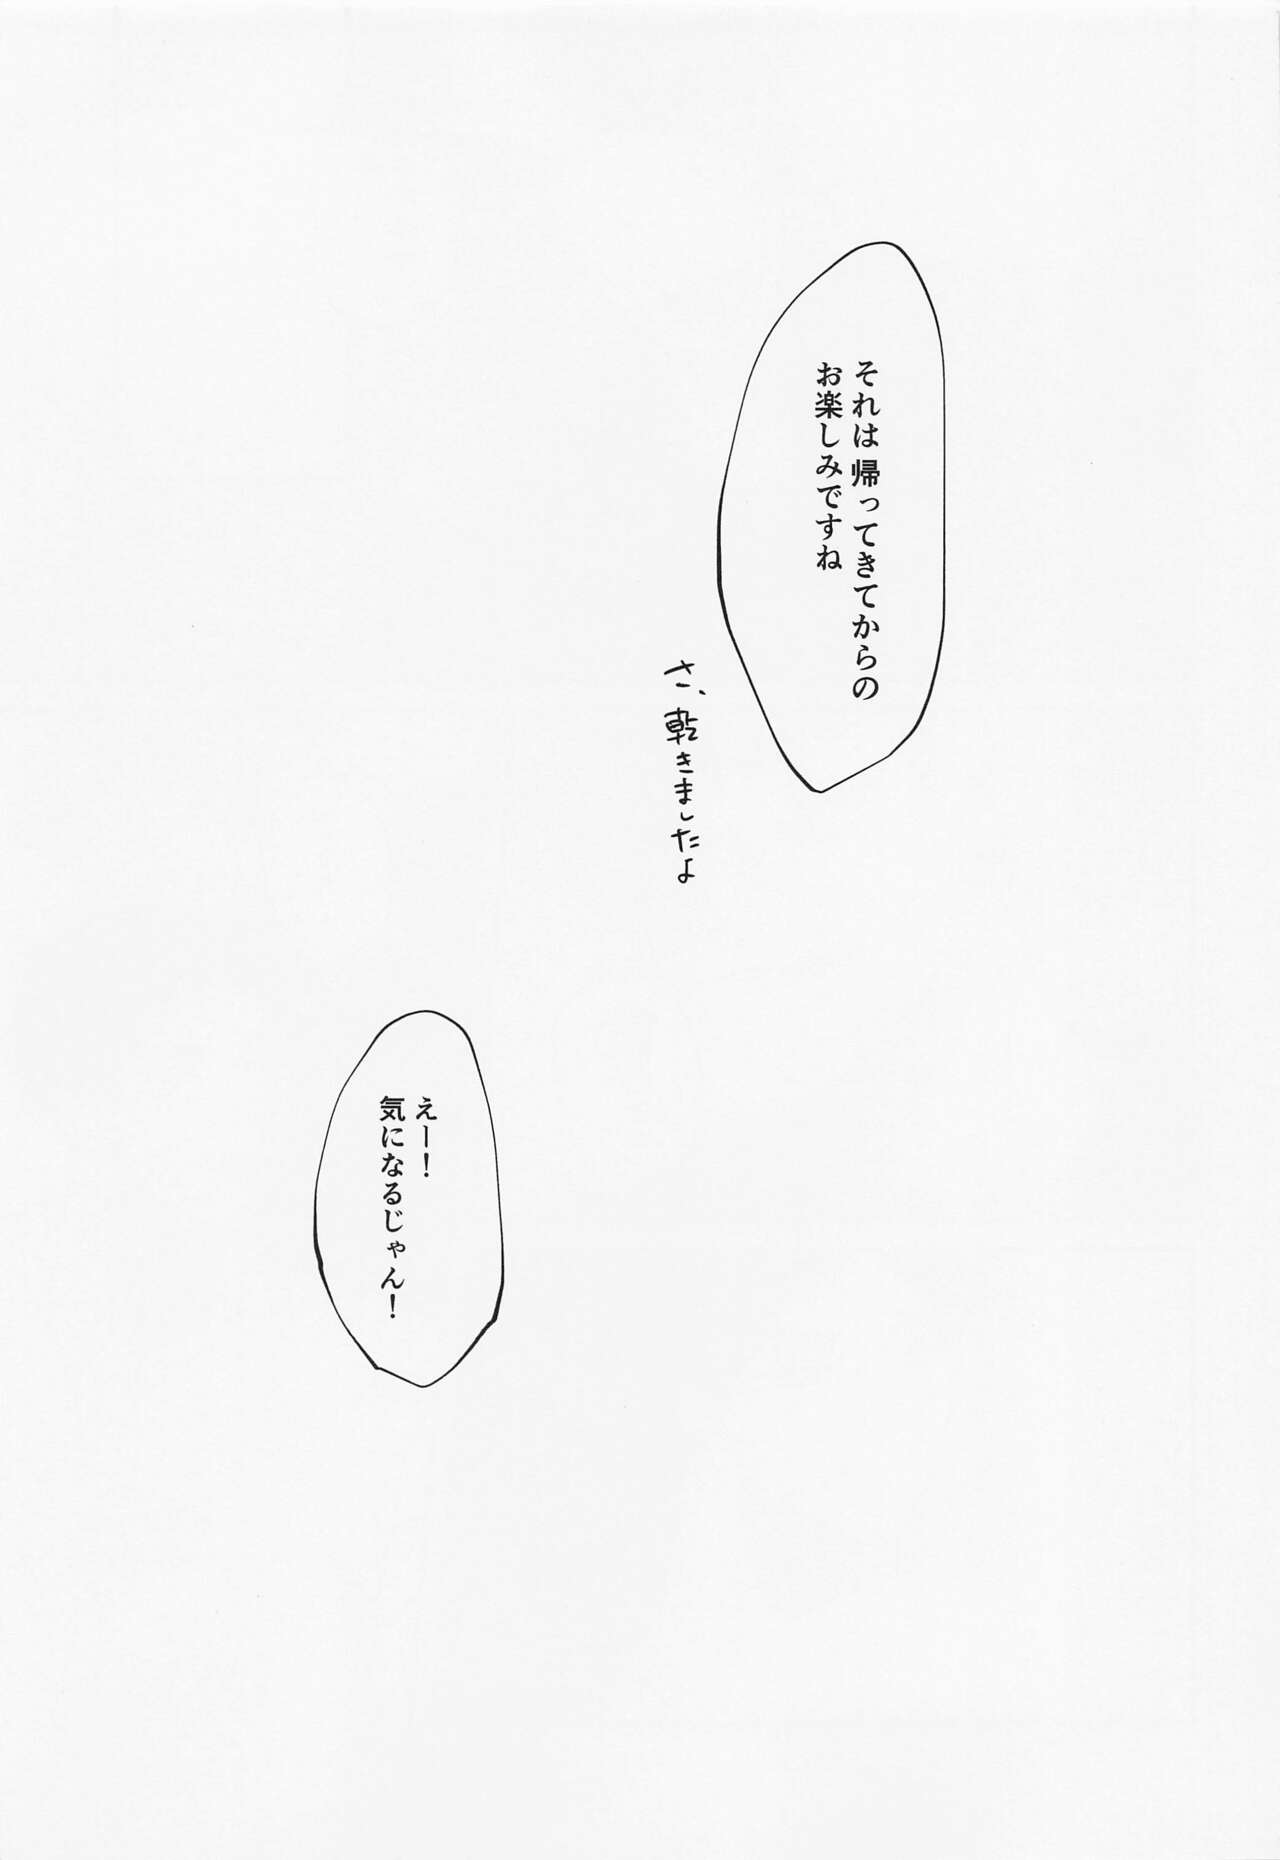 それは帰ってきてからの
お楽しみですね
さ、乾きましたよ
えー！
気になるじゃん！